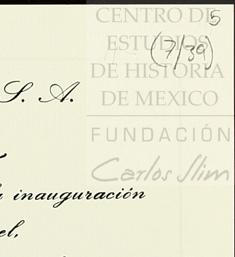 CENTRO DE
5
ESTUDIOS
(7/39)
DE HISTORIA
DE MEXICO
S. A.
FUNDACIÓN
Carlos Slim
inauguración
el,